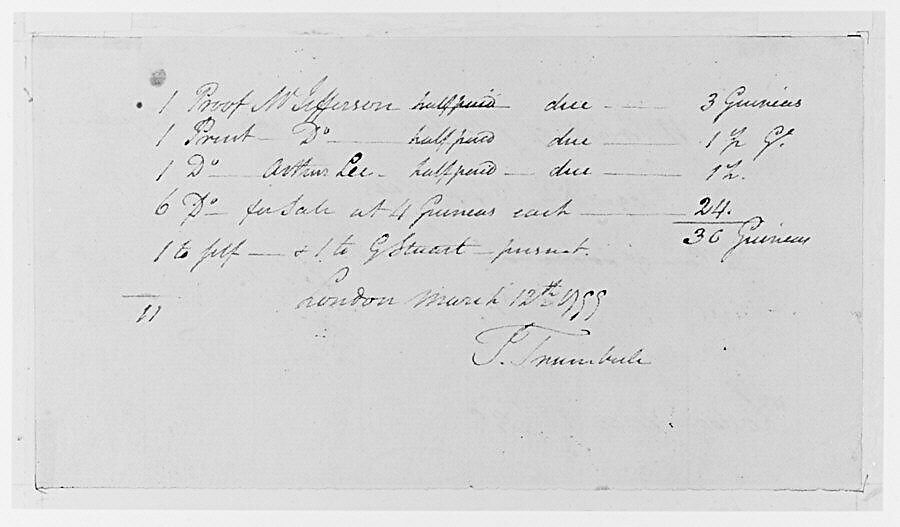 1 Proof Mr Jefferson half paid due — 3 Guineas
1 Print — Do — half paid due — 1½ Gs.
1 Do — Arthur Lee — half paid — due — 1½.
6 Do — for Sale at 4 Guineas each — 24.
1 to self — & 1 to G Stuart — present. 30 Guineas
11 London March 12th 1799
J. Trumbull